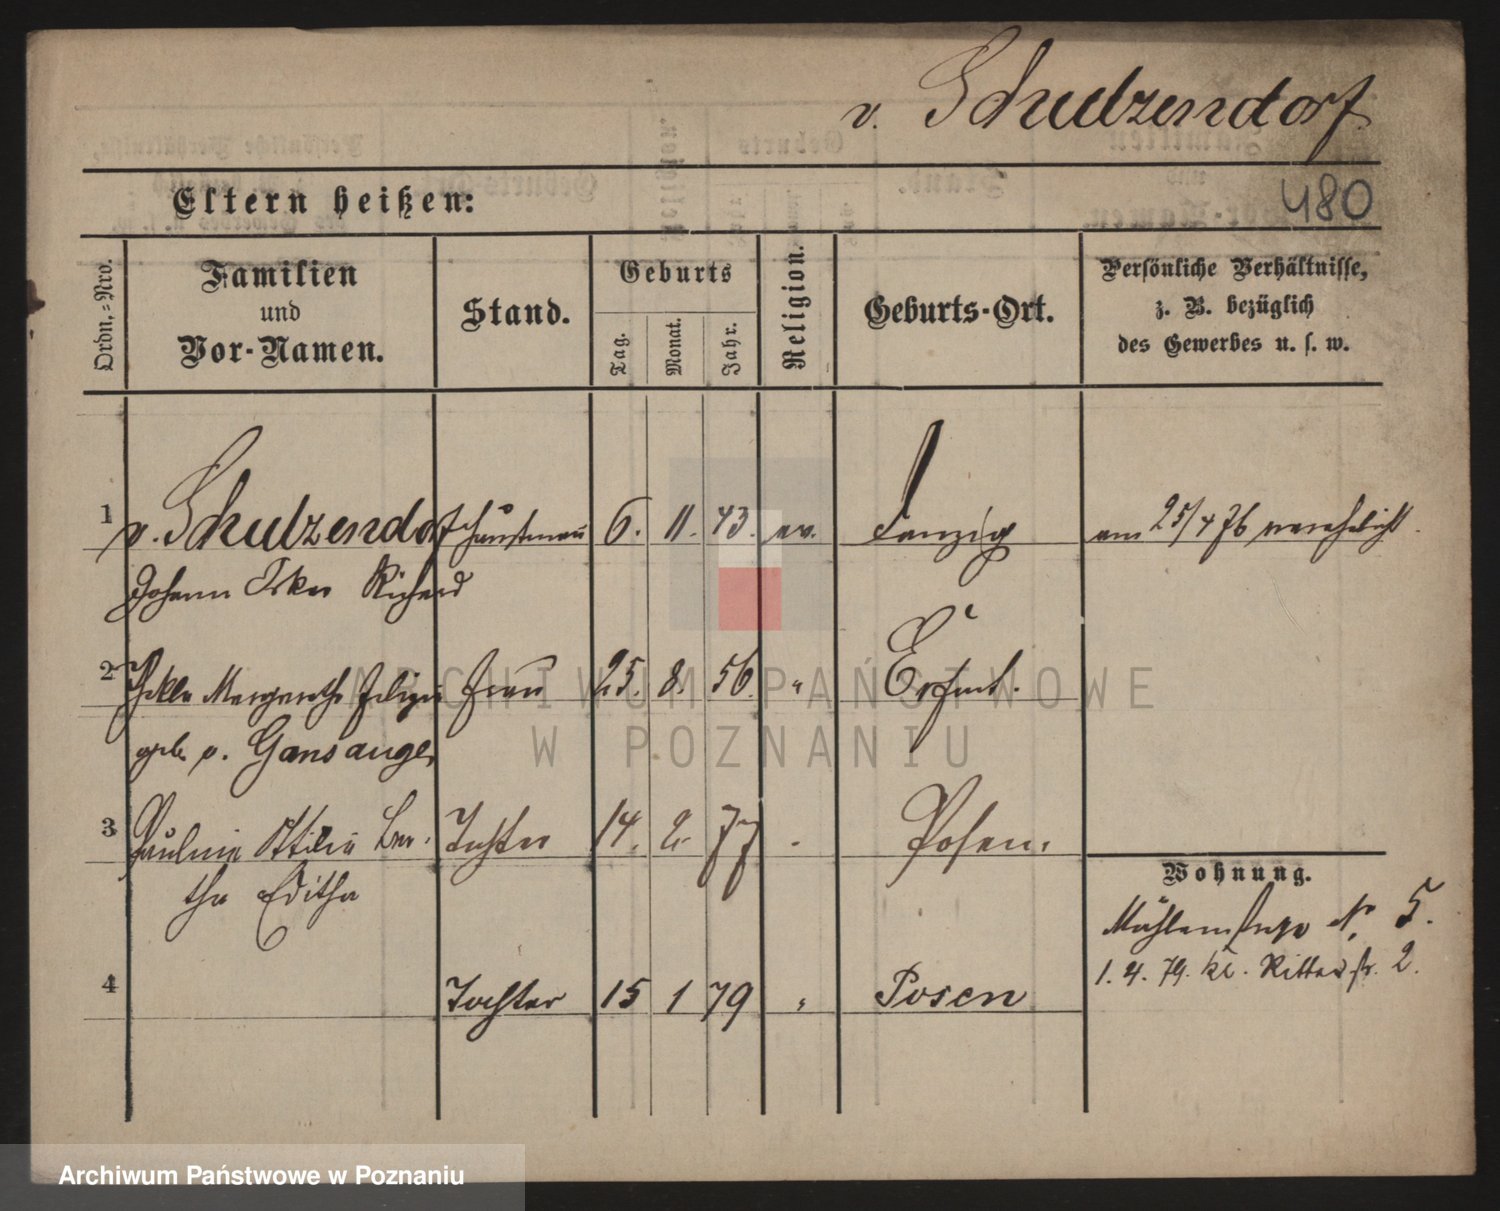 v. Schulzendorf
Eltern heißen:
480
Ordn.-Nro.
Familien
und
Vor-Namen.
Stand.
Geburts
Tag.
Monat.
Jahr.
Religion.
Geburts-Ort.
Persönliche Verhältnisse,
z. B. bezüglich
des Gewerbes u. s. w.
1 v. Schulzendorf Hauptmann 6. 11. 43. ev. Danzig am 25/4 76 verehelicht.
Johann Oskar Richard
2 Thekla Margarethe Frau 25. 8. 56. " Erfurt.
geb. v. Gansauge
3 Pauline Ottilie Ber- Tochter 14. 2. 77 " Posen.
tha Editha
4 Tochter 15 1 79 " Posen
Wohnung.
Mühlenstraße No. 5.
1. 4. 79. kl. Ritterstr. 2.
ARCHIWUM PAŃSTWOWE
W POZNANIU
Archiwum Państwowe w Poznaniu